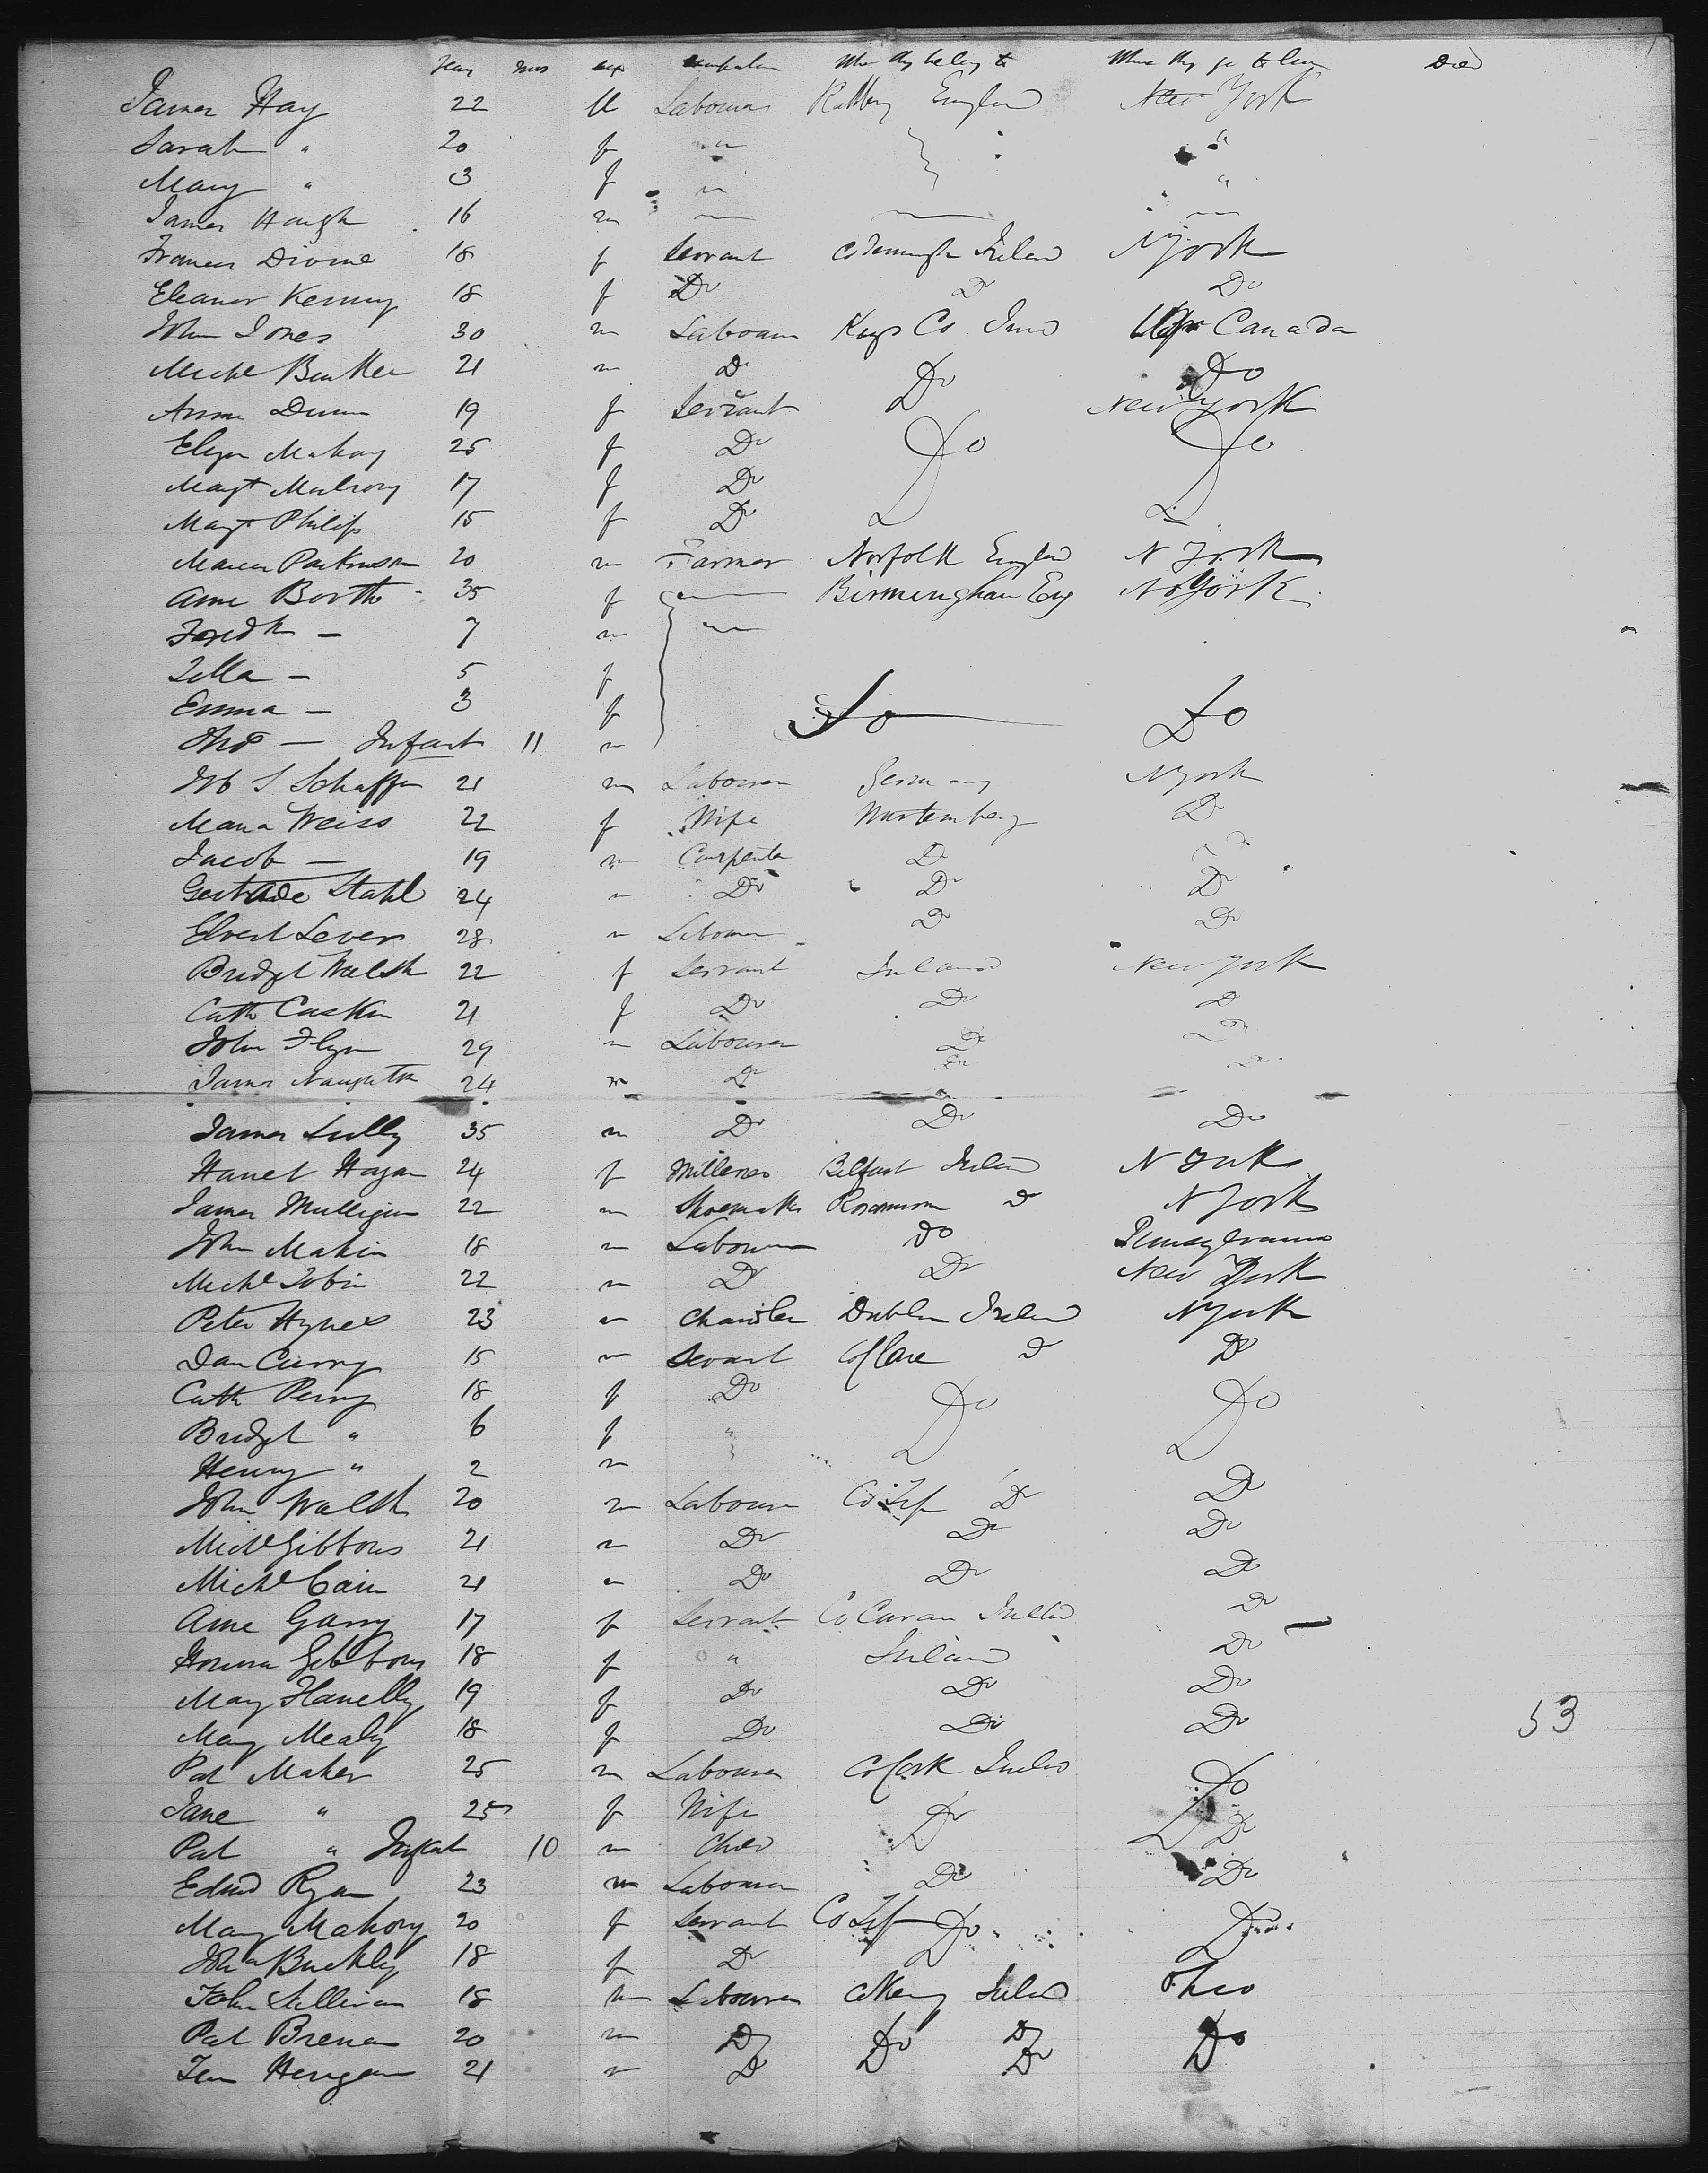 Years mos sex occupation Where they belong to Where they go to Died
James Hay 22 M Labourer England New York
Sarah " 20 f "
Mary " 3 f "
James Hough 16 m
Frances Divine 18 f Servant Ireland N York
Eleanor Kenny 18 f Do Do Do
John Jones 30 m Labourer Kings Co Canada
Michl 21 m Do Do Do
Anne Dunn 19 f Servant New York
Eliza Mahony 25 f Do Do Do
Margt Mulrony 17 f Do
Margt Philips 15 f Do
Parkinson 20 m Farmer Norfolk England N York
Anne Booth 35 f Birmingham Eng N York
Fredk — 7 m
Zilla — 5 f
Emma — 3 f Do Do
Thos — Infant 11 m
Schaffer 21 m Labourer Germany N York
Maria Weiss 22 f Wife Wurtemberg Do
Jacob — 19 m Carpenter Do
Gertrude Stahl 24 m Do Do Do
Lever 28 m Labourer Do Do
Bridget Walsh 22 f Servant Ireland New York
Cath 21 f Do Do Do
John Flyn 29 m Labourer Do Do
James Naughton 24 m Do
James Lully 35 m Do Do Do
Hogan 24 f Milliner Belfast Ireland N York
James Mulligan 22 m Shoemaker Do N York
John Makin 18 m Labourer Do Pennsylvania
Michl Tobin 22 m Do Do New York
Peter Hynes 23 m Chandler Dublin Ireland N York
Dan Curry 15 m Servant Co Clare Do Do
Cath Perry 18 f Do Do Do
Bridgt " 6 f "
Henry " 2 m
John Walsh 20 m Labourer Co Tip Do Do
Michl Gibbons 21 m Do Do Do
Michl Cain 21 m Do Do Do
Anne Garry 17 f Servant Co Cavan Ireland Do
Honora Gibbons 18 f " Ireland Do
Mary Flanelly 19 f Do Do Do
Mary Mealy 18 f Do Do Do
53
Pat Maher 25 m Labourer Co Cork Ireland Do
Jane " 25 f Wife Do Do
Pat " Infant 10 m Child
Edmd Ryan 23 m Labourer Do Do
Mary Mahony 20 f Servant Co Tip Do Do
Buckley 18 f Do
John Sullivan 18 m Labourer Co Kerry Ireland Ohio
Pat Brenan 20 m Do Do Do Do
Henigan 21 m Do Do